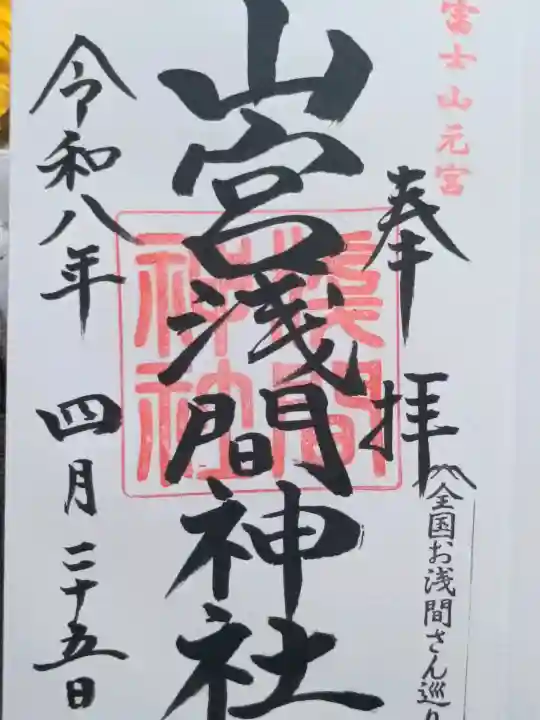 富士山元宮
奉拝
全国お浅間さん巡り
山宮浅間神社
浅間
神社
令和八年 四月二十五日